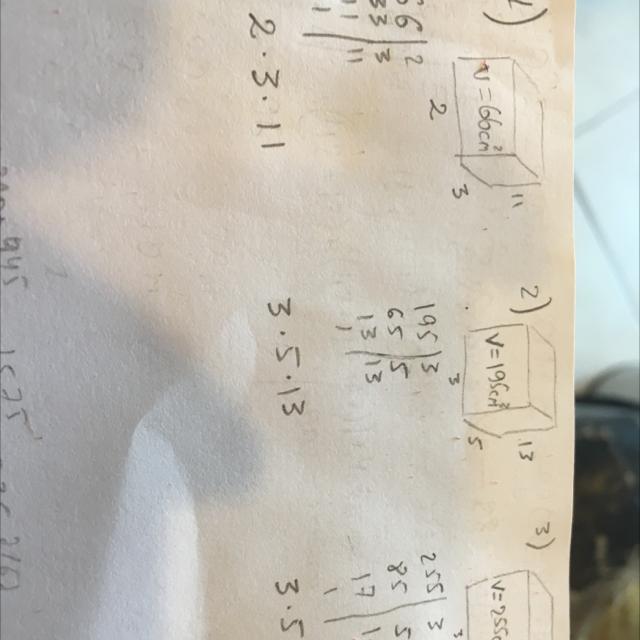 1)
V=66cm²
11
3
2
66|2
33|3
11|11
1
2·3·11
2)
V=195cm²
13
5
3
195|3
65|5
13|13
1
3·5·13
3)
V=255c
255|3
85|5
17|1
1
3·5